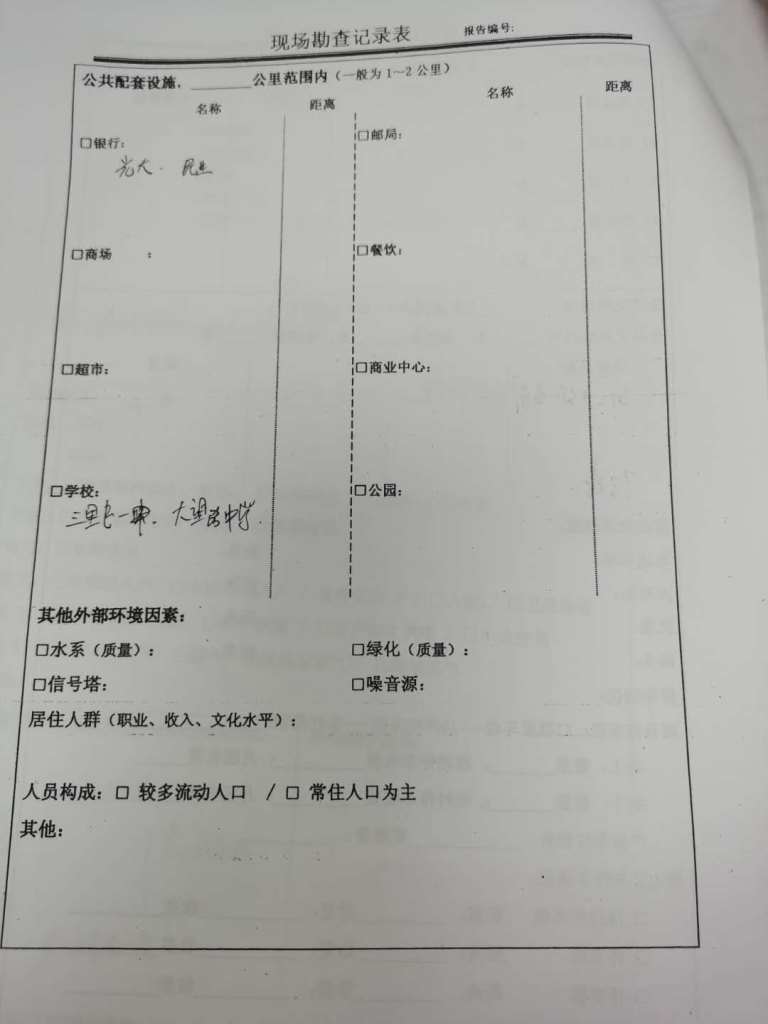 现场勘查记录表 报告编号:
公共配套设施，______公里范围内（一般为1～2公里）
名称 距离 名称 距离
□银行： □邮局：
光大. 民生
□商场 ： □餐饮：
□超市： □商业中心：
□学校： □公园：
其他外部环境因素：
□水系（质量）： □绿化（质量）：
□信号塔： □噪音源：
居住人群（职业、收入、文化水平）：
人员构成：□ 较多流动人口 / □ 常住人口为主
其他：